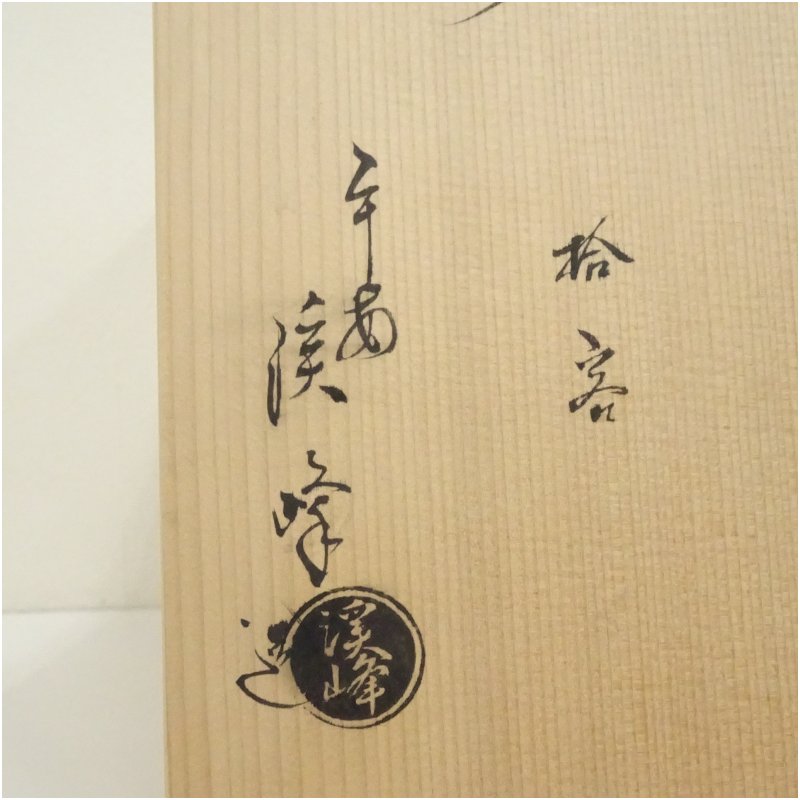 拾客
平安
渓峰
造
渓峰